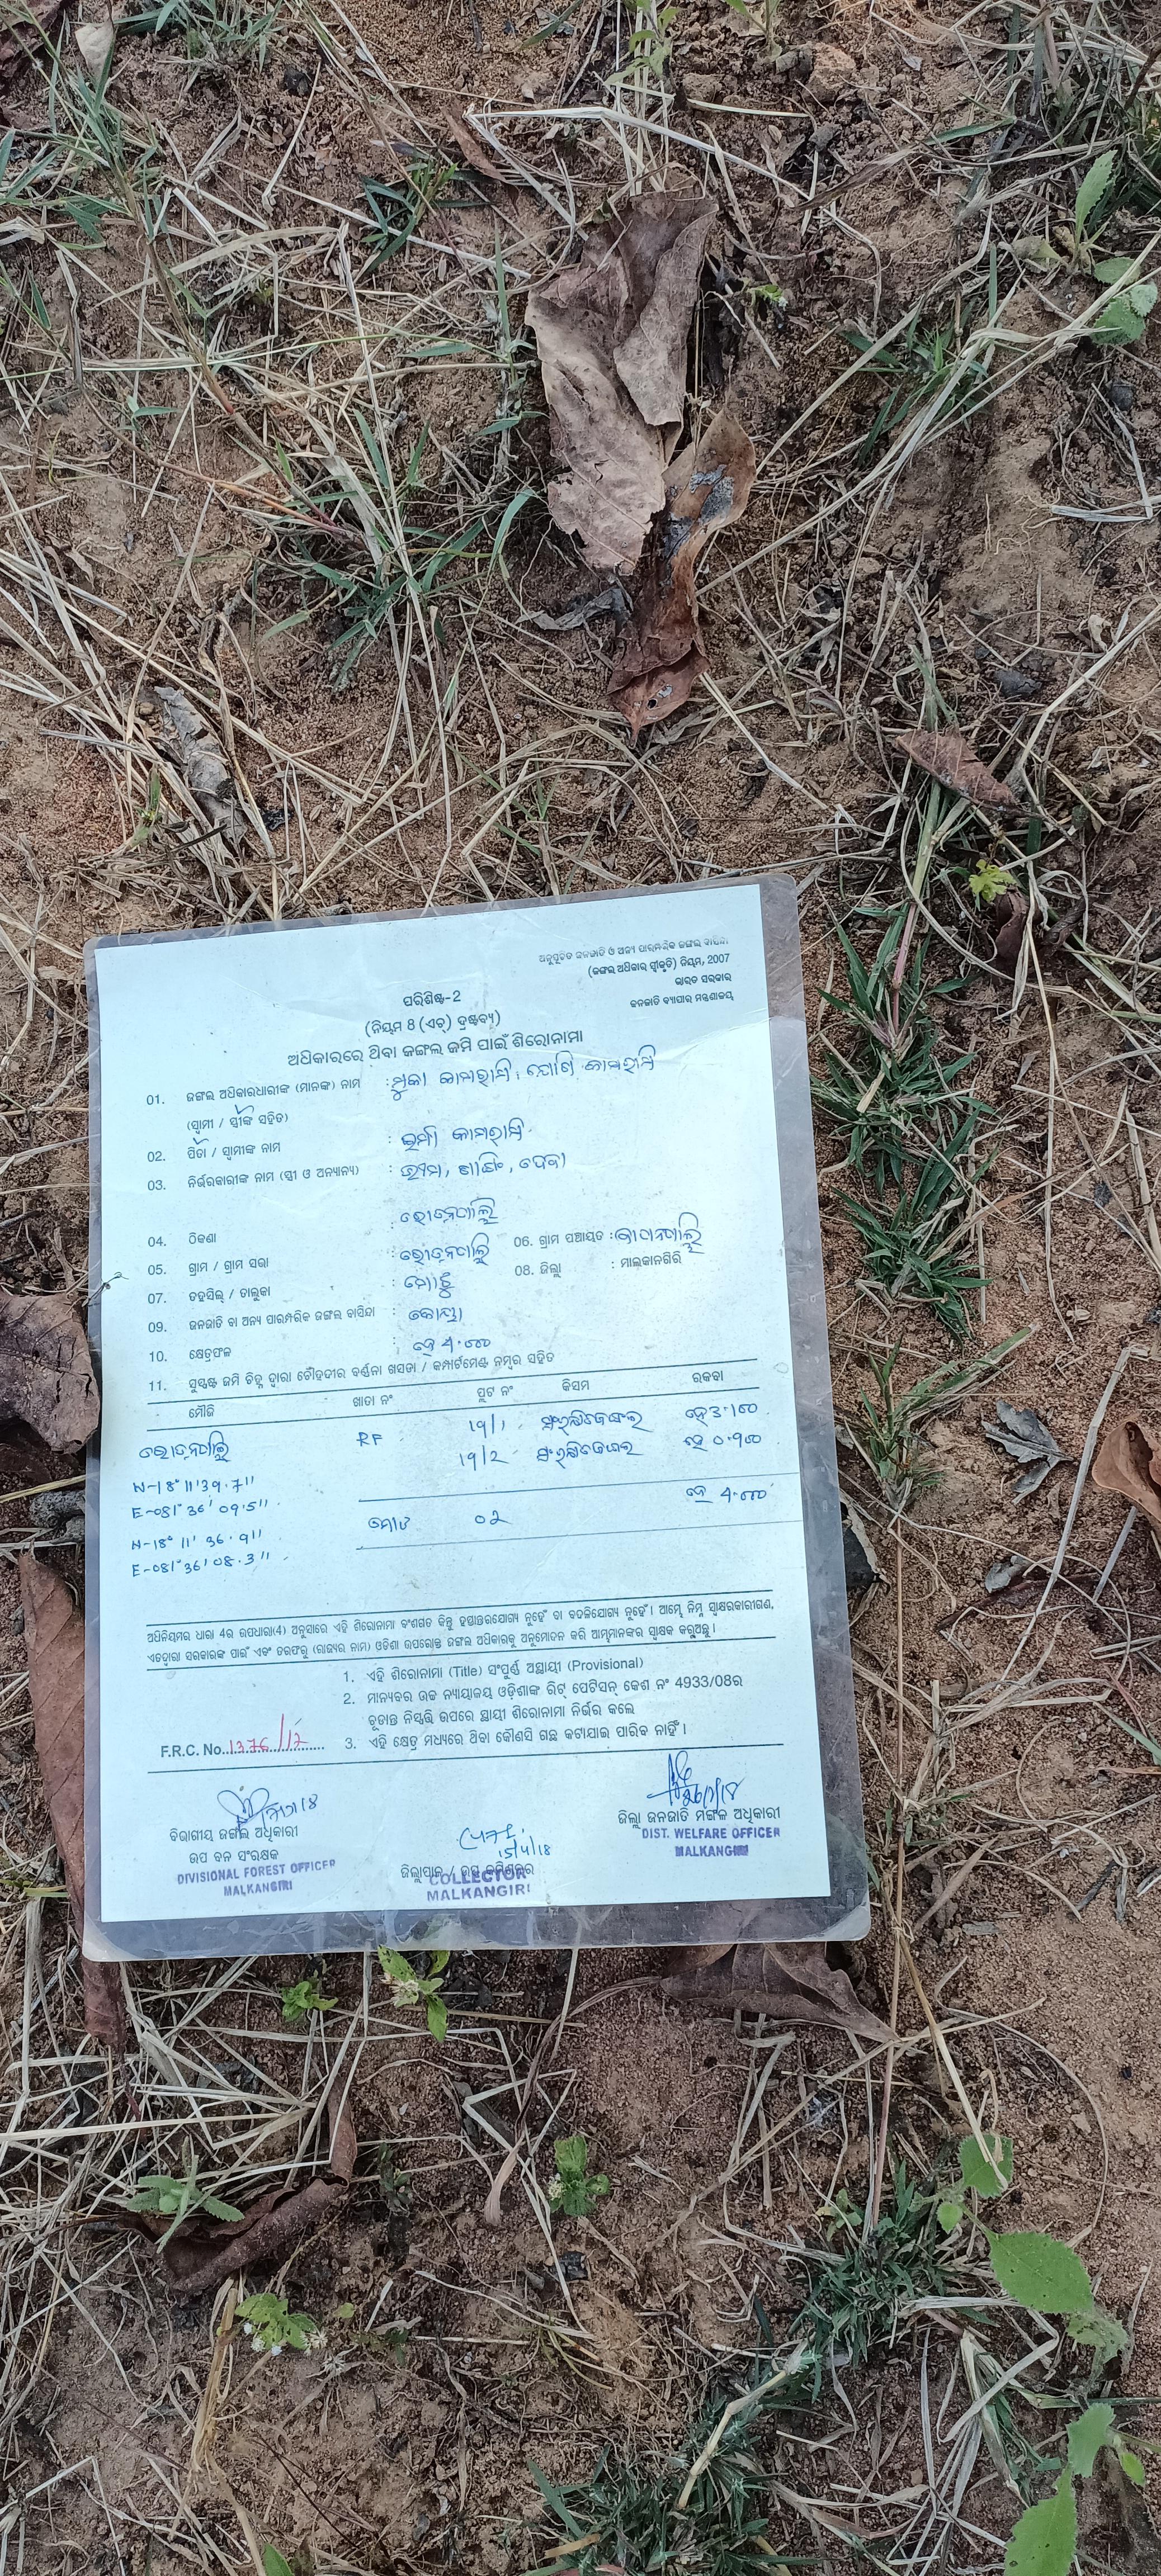 ଅନୁସୂଚିତ ଜନଜାତି ଓ ଅନ୍ୟ ପାରମ୍ପରିକ ଜଙ୍ଗଲ ବାସିନ୍ଦା
(ଜଙ୍ଗଲ ଅଧିକାର ସ୍ୱୀକୃତି) ନିୟମ, 2007
ଭାରତ ସରକାର
ଜନଜାତି ବ୍ୟାପାର ମନ୍ତ୍ରଣାଳୟ
ପରିଶିଷ୍ଟ-2
(ନିୟମ 8 (ଏଚ୍) ଦ୍ରଷ୍ଟବ୍ୟ)
ଅଧିକାରରେ ଥିବା ଜଙ୍ଗଲ ଜମି ପାଇଁ ଶିରୋନାମା
01. ଜଙ୍ଗଲ ଅଧିକାରଧାରୀଙ୍କ (ମାନଙ୍କ) ନାମ :
(ସ୍ୱାମୀ / ସ୍ତ୍ରୀଙ୍କ ସହିତ)
02. ପିତା / ସ୍ୱାମୀଙ୍କ ନାମ :
03. ନିର୍ଭରକାରୀଙ୍କ ନାମ (ସ୍ତ୍ରୀ ଓ ଅନ୍ୟାନ୍ୟ) : ଭୀମା,
04. ଠିକଣା :
05. ଗ୍ରାମ / ଗ୍ରାମ ସଭା : 06. ଗ୍ରାମ ପଞ୍ଚାୟତ :
07. ତହସିଲ୍ / ତାଲୁକା : ମୋଟୁ 08. ଜିଲ୍ଲା : ମାଲକାନଗିରି
09. ଜନଜାତି ବା ଅନ୍ୟ ପାରମ୍ପରିକ ଜଙ୍ଗଲ ବାସିନ୍ଦା : କୋୟା
10. କ୍ଷେତ୍ରଫଳ : ହେ ୪.୦୦୦
11. ସୁସ୍ପଷ୍ଟ ଜମି ଚିହ୍ନ ଦ୍ୱାରା ଚୌହଦୀର ବର୍ଣ୍ଣନା ଖସଡା / କମ୍ପାର୍ଟମେଣ୍ଟ ନମ୍ବର ସହିତ
ମୌଜି ଖାତା ନଂ ପ୍ଲଟ ନଂ କିସମ ରକବା
RF 19/1 ହେ 3.100
19/2 ହେ 0.900
N-18° 11' 39.7"
E-081° 36' 09.5"
ମୋଟ ୦୨ ହେ 4.000
N-18° 11' 36.9"
E-081° 36' 08.3"
ଅଧିନିୟମର ଧାରା 4ର ଉପଧାରା(4) ଅନୁସାରେ ଏହି ଶିରୋନାମା ବଂଶଗତ କିନ୍ତୁ ହସ୍ତାନ୍ତରଯୋଗ୍ୟ ନୁହେଁ ବା ବଦଳିଯୋଗ୍ୟ ନୁହେଁ । ଆମ୍ଭେ ନିମ୍ନ ସ୍ୱାକ୍ଷରକାରୀଗଣ,
ଏତଦ୍ୱାରା ସରକାରଙ୍କ ପାଇଁ ଏବଂ ତରଫରୁ (ରାଜ୍ୟର ନାମ) ଓଡିଶା ଉପରୋକ୍ତ ଜଙ୍ଗଲ ଅଧିକାରକୁ ଅନୁମୋଦନ କରି ଆମ୍ଭମାନଙ୍କର ସ୍ୱାକ୍ଷର କରୁଅଛୁ ।
1. ଏହି ଶିରୋନାମା (Title) ସଂପୂର୍ଣ୍ଣ ଅସ୍ଥାୟୀ (Provisional)
2. ମାନ୍ୟବର ଉଚ୍ଚ ନ୍ୟାୟାଳୟ ଓଡ଼ିଶାଙ୍କ ରିଟ୍ ପେଟିସନ୍ କେଶ ନଂ 4933/08ର
ଚୂଡାନ୍ତ ନିସ୍ପତ୍ତି ଉପରେ ସ୍ଥାୟୀ ଶିରୋନାମା ନିର୍ଭର କଲେ
F.R.C. No. 1376/12
3. ଏହି କ୍ଷେତ୍ର ମଧ୍ୟରେ ଥିବା କୌଣସି ଗଛ କଟାଯାଇ ପାରିବ ନାହିଁ ।
ବିଭାଗୀୟ ଜଙ୍ଗଲ ଅଧିକାରୀ
ଉପ ବନ ସଂରକ୍ଷକ
DIVISIONAL FOREST OFFICER
MALKANGIRI
15/4/18
ଜିଲ୍ଲାପାଳ / ଉପ କମିଶନର
COLLECTOR
MALKANGIRI
ଜିଲ୍ଲା ଜନଜାତି ମଙ୍ଗଳ ଅଧିକାରୀ
DIST. WELFARE OFFICER
MALKANGIRI